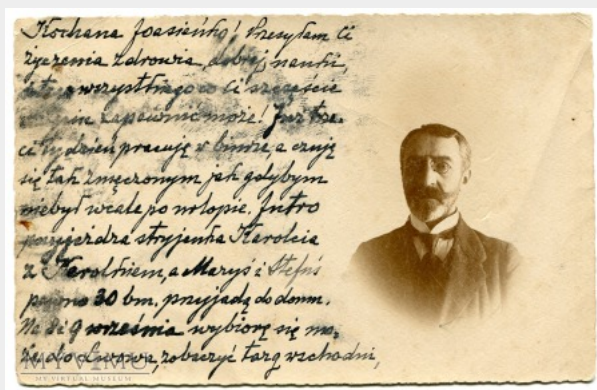 Kochana Joasieńko! Przesyłam Ci
życzenia zdrowia, dobrej nauki,
wszystkiego co Ci szczęście
zapewnić może! Już trze-
ci tydzień pracuję w biurze, a czuję
się tak zmęczonym jak gdybym
niebył wcale po urlopie. Jutro
przyjeżdża stryjenka Karolcia
z Karolkiem, a Maryś i Stefuś
pewno 30 bm. przyjadą do domu.
Na 8 i 9 września wybiorę się mo-
że do Lwowa, zobaczyć targ wschodni,
MYVIMU
MY VIRTUAL MUSEUM